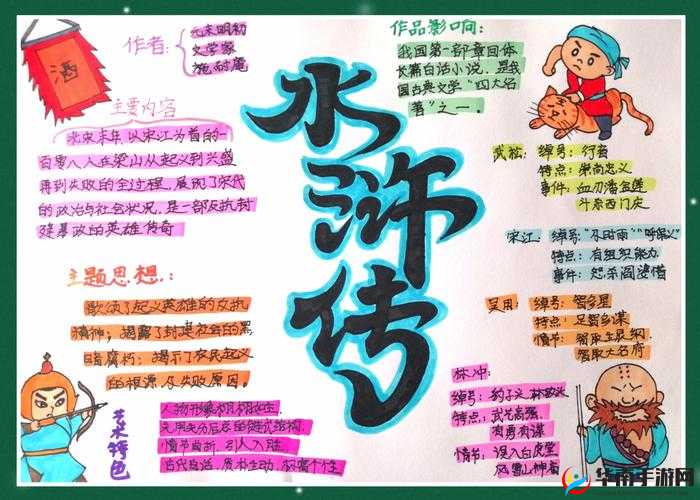 酒
作者：
元末明初
文学家
施耐庵
主要内容
北宋末年,以宋江为首的一
百零八人在梁山从起义到兴盛
再到失败的全过程,展现了宋代
的政治与社会状况,是一部反抗封
建暴政的英雄传奇
主题思想：
歌颂了起义英雄的反抗
精神；揭露了封建社会的黑
暗腐朽；揭示了农民起义
的根源及失败原因。
艺术特色
人物形象栩栩如生.
情节曲折,引人入胜.
古代白话,质朴生动,极富个性.
水浒传
作品影响：
我国第一部章回体
长篇白话小说，是我
国古典文学"四大名
著"之一.
武松：绰号：行者
特点：崇尚忠义
事件：血刃潘金莲
斗杀西门庆
宋江：绰号："及时雨""呼保义"
特点：有组织能力
事件：怒杀阎婆惜
吴用：绰号：智多星
特点：足智多谋
情节：智取生辰纲
智取大名府
林冲：
绰号：豹子头
特点：武艺高强
有勇有谋
情节：误入白虎堂
风雪山神庙
华南手游网